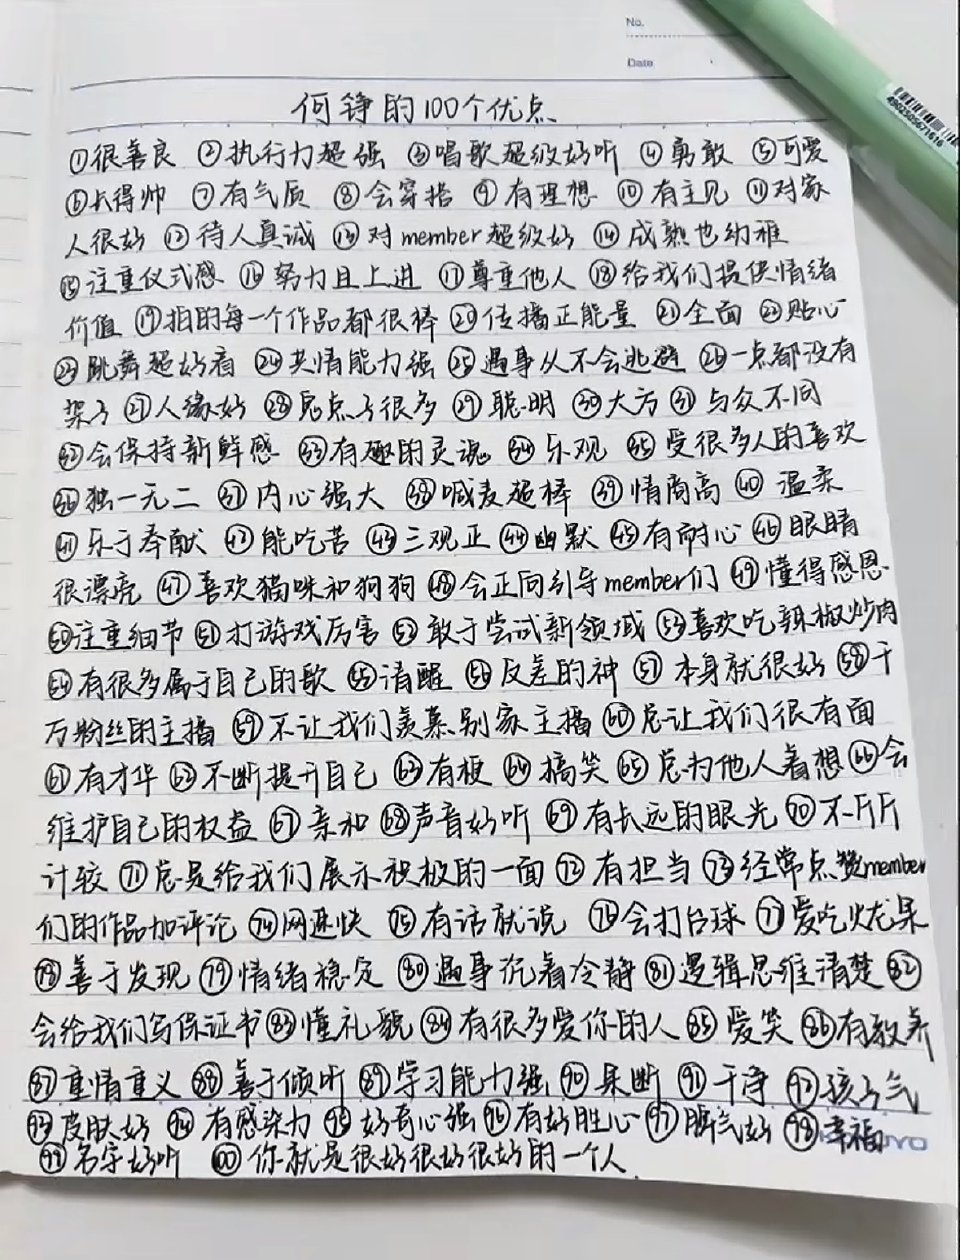 No.
Date
4902505671616
何铮的100个优点
①很善良 ②执行力超强 ③唱歌超级好听 ④勇敢 ⑤可爱
⑥长得帅 ⑦有气质 ⑧会穿搭 ⑨有理想 ⑩有主见 ⑪对家
人很好 ⑫待人真诚 ⑬对member超级好 ⑭成熟也幼稚
⑮注重仪式感 ⑯努力且上进 ⑰尊重他人 ⑱给我们提供情绪
价值 ⑲拍的每一个作品都很棒 ⑳传播正能量 ㉑全面 ㉒贴心
㉓跳舞超好看 ㉔共情能力强 ㉕遇事从不会逃避 ㉖一点都没有
架子 ㉗人缘好 ㉘鬼点子很多 ㉙聪明 ㉚大方 ㉛与众不同
㉜会保持新鲜感 ㉝有趣的灵魂 ㉞乐观 ㉟受很多人的喜欢
㊱独一无二 ㊲内心强大 ㊳喊麦超棒 ㊴情商高 ㊵温柔
㊶乐于奉献 ㊷能吃苦 ㊸三观正 ㊹幽默 ㊺有耐心 ㊻眼睛
很漂亮 ㊼喜欢猫咪和狗狗 ㊽会正向引导member们 ㊾懂得感恩
㊿注重细节 51打游戏厉害 52敢于尝试新领域 53喜欢吃辣椒炒肉
54有很多属于自己的歌 55清醒 56反差的神 57本身就很好 58千
万粉丝的主播 59不让我们羡慕别家主播 60总让我们很有面
61有才华 62不断提升自己 63有梗 64搞笑 65总为他人着想 66会
维护自己的权益 67亲和 68声音好听 69有长远的眼光 70不斤斤
计较 71总是给我们展示积极的一面 72有担当 73经常点赞member
们的作品加评论 74网速快 75有话就说 76会打台球 77爱吃火龙果
78善于发现 79情绪稳定 80遇事沉着冷静 81逻辑思维清楚 82
会给我们写保证书 83懂礼貌 84有很多爱你的人 85爱笑 86有教养
87重情重义 88善于倾听 89学习能力强 90果断 91干净 92孩子气
93皮肤好 94有感染力 95好奇心强 96有好胜心 97脾气好 98幸福
99名字好听 100你就是很好很好很好的一个人